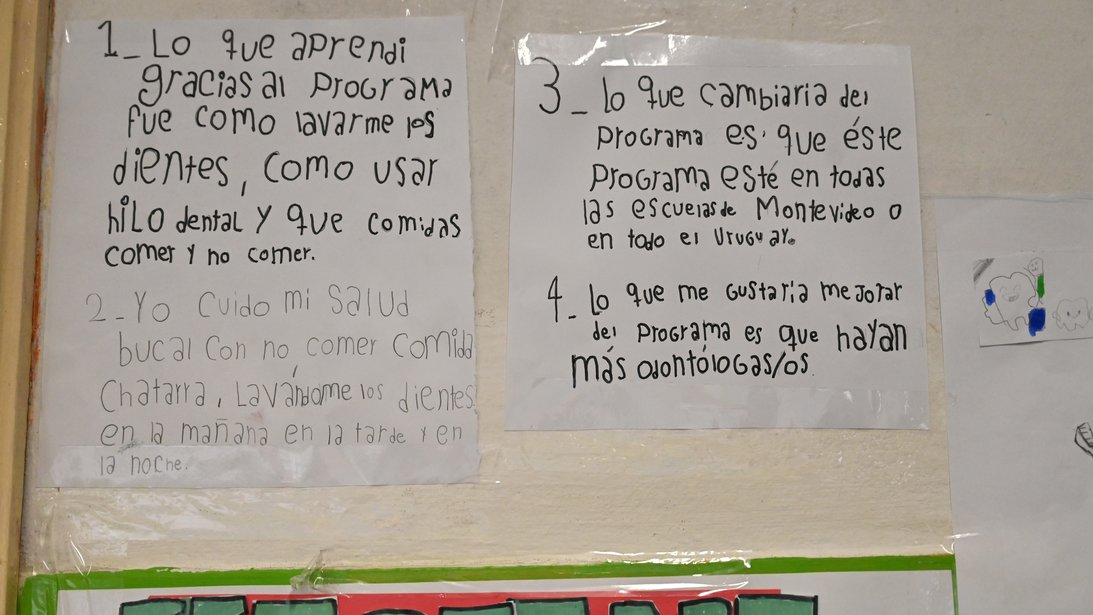 1_ Lo que aprendi
gracias al programa
fue como lavarme los
dientes, como usar
hilo dental y que comidas
comer y no comer.
2_ Yo cuido mi salud
bucal con no comer comida
chatarra, Lavándome los dientes
en la mañana en la tarde y en
la noche.
3_ lo que cambiaria del
programa es que éste
programa esté en todas
las escuelas de Montevideo o
en todo el Uruguay.
4_ Lo que me gustaría mejorar
del programa es que hayan
más odontólogas/os.